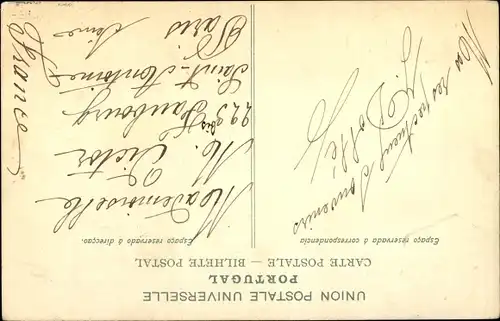 UNION POSTALE UNIVERSELLE
PORTUGAL
CARTE POSTALE — BILHETE POSTAL
Espaço reservado á correspondencia
Espaço reservado á direcção.
Souvenirs
Mademoiselle
M. Victor
223 bis Faubourg
Saint-Antoine
Paris
Seine
France